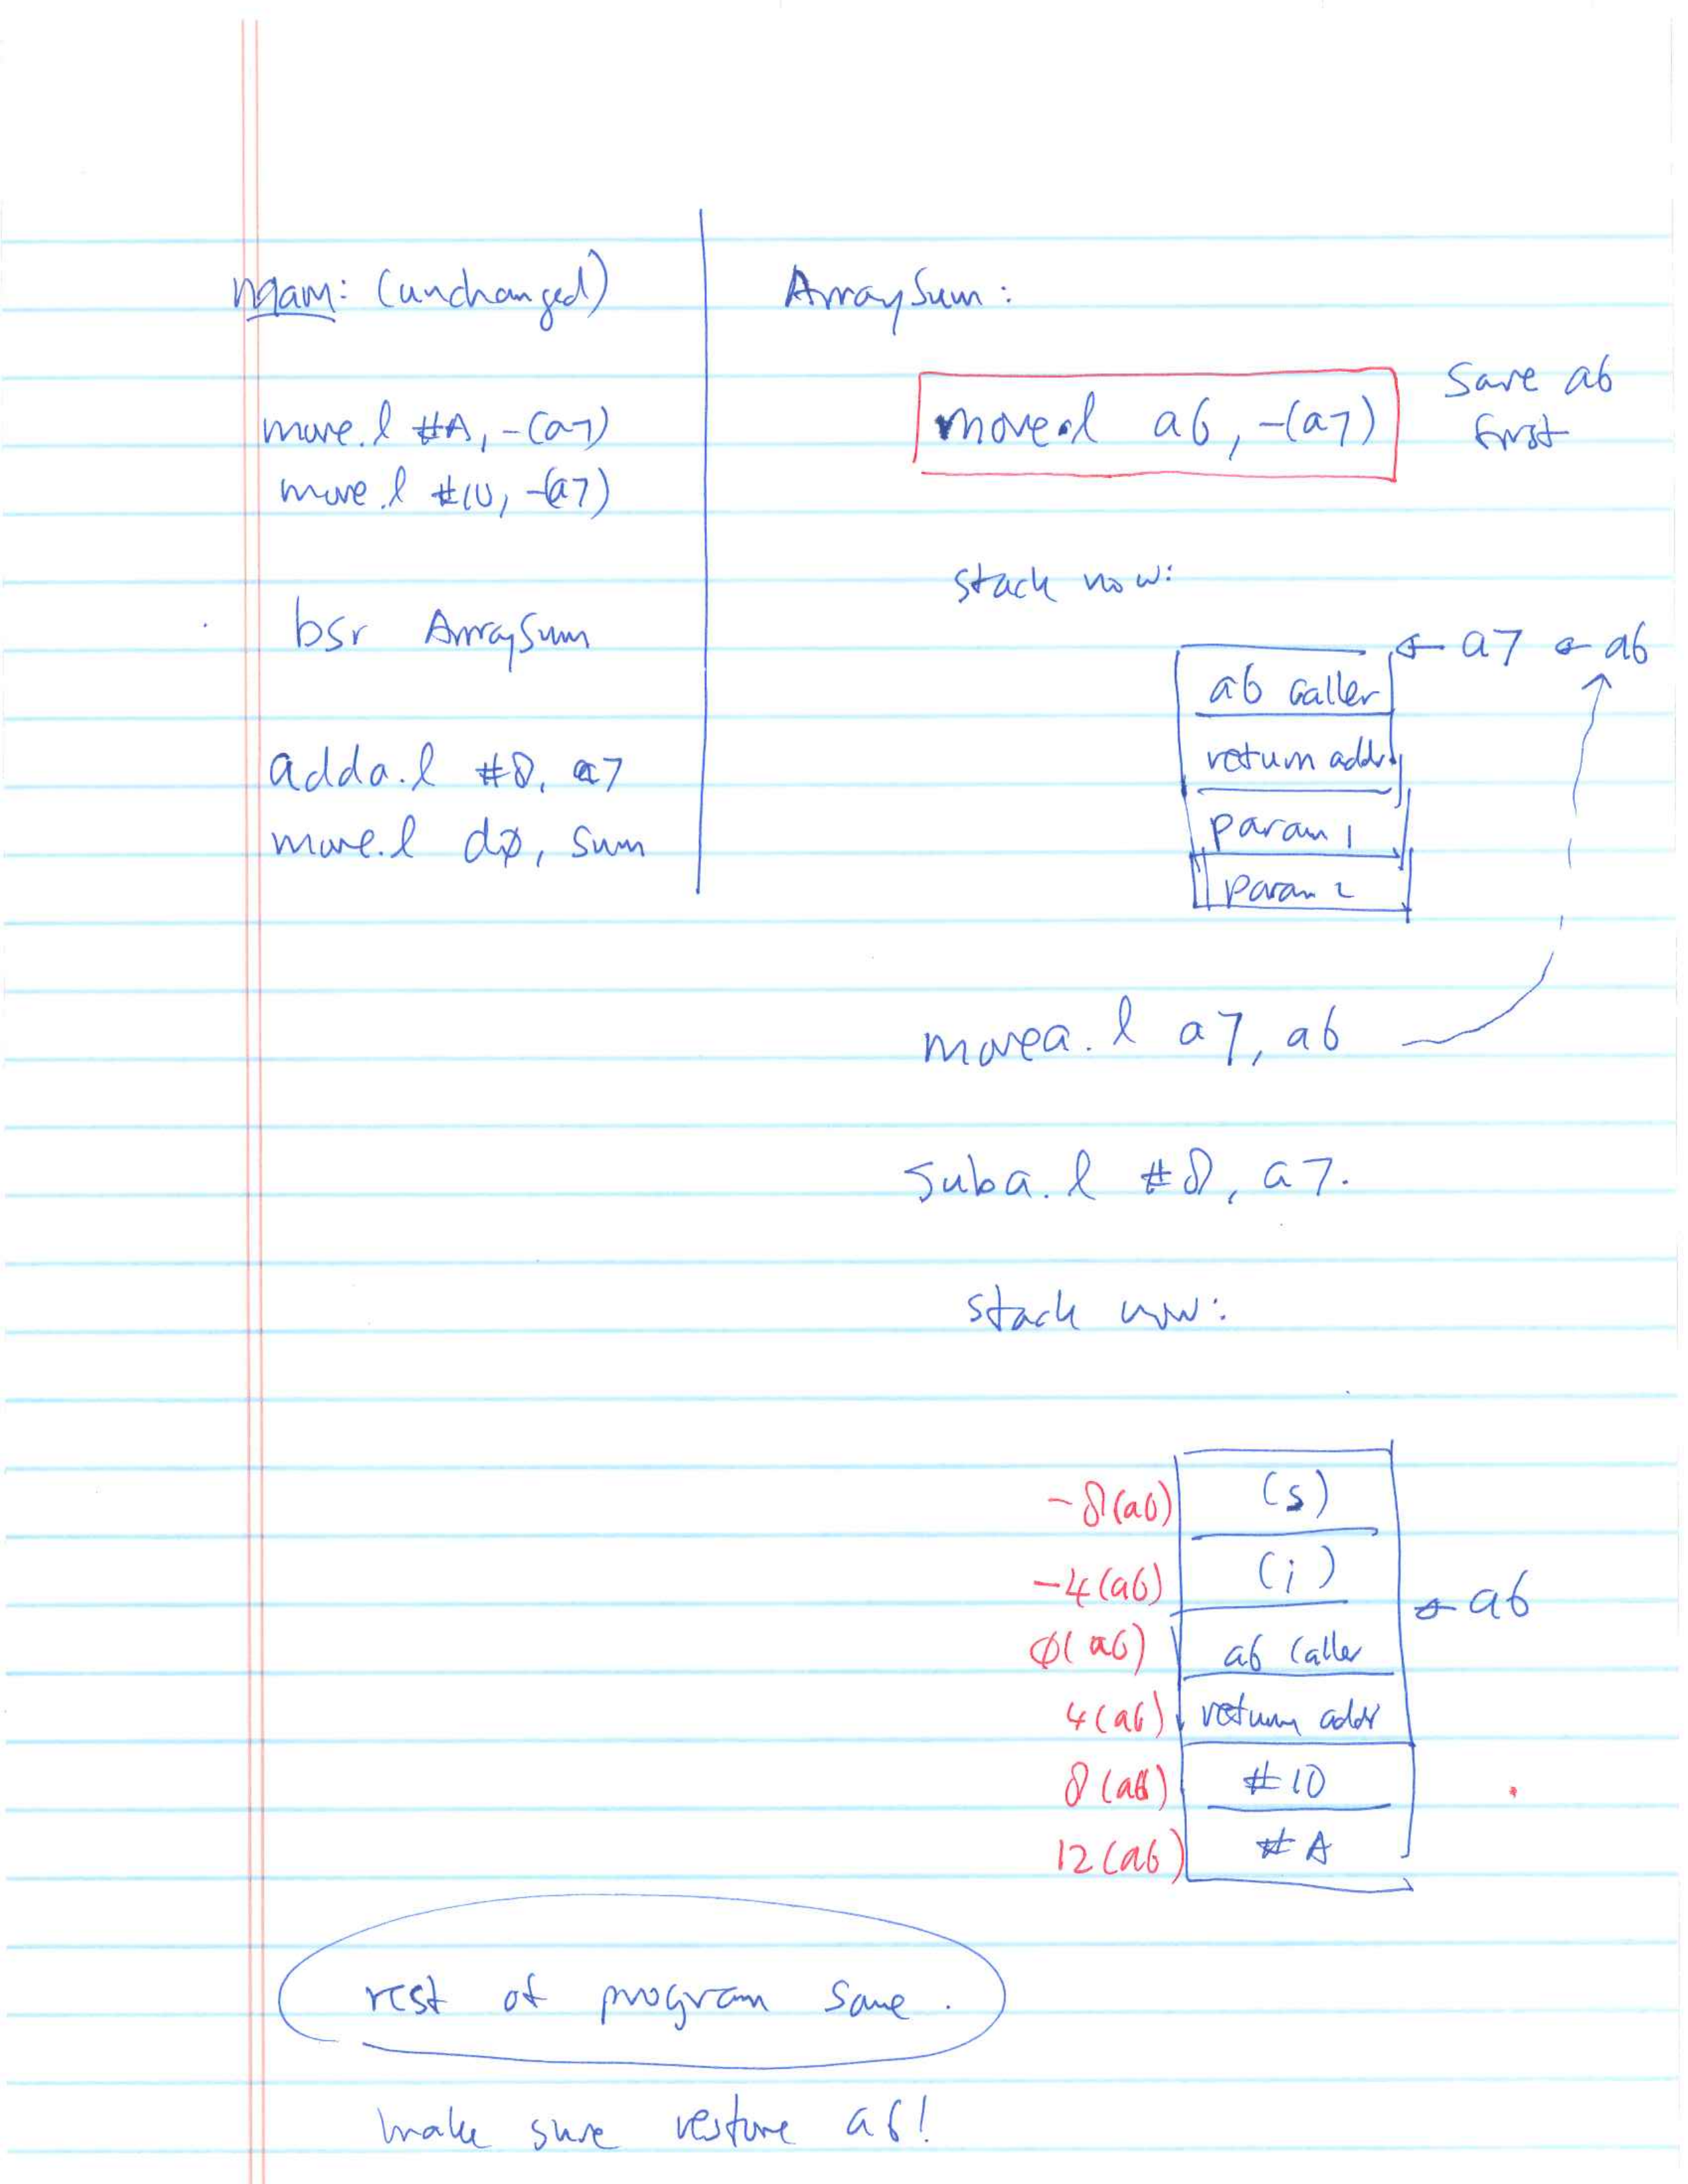 main: (unchanged)
move.l #A, -(a7)
move.l #10, -(a7)
bsr ArraySum
adda.l #8, a7
move.l d0, sum
ArraySum:
move.l a6, -(a7)
Save a6
first
stack now:
← a7 ← a6
a6 caller
return addr
param 1
param 2
movea.l a7, a6
suba.l #8, a7.
stack now:
-8(a6) (s)
-4(a6) (i)
← a6
0(a6) a6 caller
4(a6) return addr
8(a6) #10
12(a6) #A
rest of program same.
make sure restore a6!